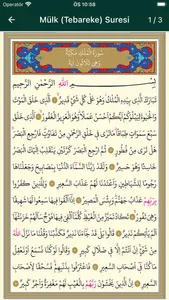 Operatör 10:58
Mülk (Tebareke) Suresi 1 / 3
سُورَةُ الْمُلْكِ مَكِّيَّةٌ
وَهِيَ ثَلَاثُونَ اٰيَةً
بِسْمِ اللّٰهِ الرَّحْمٰنِ الرَّحِيمِ
تَبَارَكَ الَّذِي بِيَدِهِ الْمُلْكُ وَهُوَ عَلٰى كُلِّ شَيْءٍ قَدِيرٌ اَلَّذِي خَلَقَ الْمَوْتَ
وَالْحَيٰوةَ لِيَبْلُوَكُمْ اَيُّكُمْ اَحْسَنُ عَمَلًا وَهُوَ الْعَزِيزُ الْغَفُورُ اَلَّذِي خَلَقَ
سَبْعَ سَمٰوَاتٍ طِبَاقًا مَا تَرٰى فِي خَلْقِ الرَّحْمٰنِ مِنْ تَفَاوُتٍ فَارْجِعِ الْبَصَرَ
هَلْ تَرٰى مِنْ فُطُورٍ ثُمَّ ارْجِعِ الْبَصَرَ كَرَّتَيْنِ يَنْقَلِبْ اِلَيْكَ الْبَصَرُ
خَاسِئًا وَهُوَ حَسِيرٌ وَلَقَدْ زَيَّنَّا السَّمَاءَ الدُّنْيَا بِمَصَابِيحَ وَجَعَلْنَاهَا
رُجُومًا لِلشَّيَاطِينِ وَاَعْتَدْنَا لَهُمْ عَذَابَ السَّعِيرِ وَلِلَّذِينَ كَفَرُوا
بِرَبِّهِمْ عَذَابُ جَهَنَّمَ وَبِئْسَ الْمَصِيرُ اِذَا اُلْقُوا فِيهَا سَمِعُوا لَهَا شَهِيقًا
وَهِيَ تَفُورُ تَكَادُ تَمَيَّزُ مِنَ الْغَيْظِ كُلَّمَا اُلْقِيَ فِيهَا فَوْجٌ سَاَلَهُمْ خَزَنَتُهَا
اَلَمْ يَاْتِكُمْ نَذِيرٌ قَالُوا بَلٰى قَدْ جَاءَنَا نَذِيرٌ فَكَذَّبْنَا وَقُلْنَا مَا نَزَّلَ اللّٰهُ
مِنْ شَيْءٍ اِنْ اَنْتُمْ اِلَّا فِي ضَلَالٍ كَبِيرٍ وَقَالُوا لَوْ كُنَّا نَسْمَعُ اَوْ نَعْقِلُ
مَا كُنَّا فِي اَصْحَابِ السَّعِيرِ فَاعْتَرَفُوا بِذَنْبِهِمْ فَسُحْقًا لِاَصْحَابِ
السَّعِيرِ اِنَّ الَّذِينَ يَخْشَوْنَ رَبَّهُمْ بِالْغَيْبِ لَهُمْ مَغْفِرَةٌ وَاَجْرٌ كَبِيرٌ